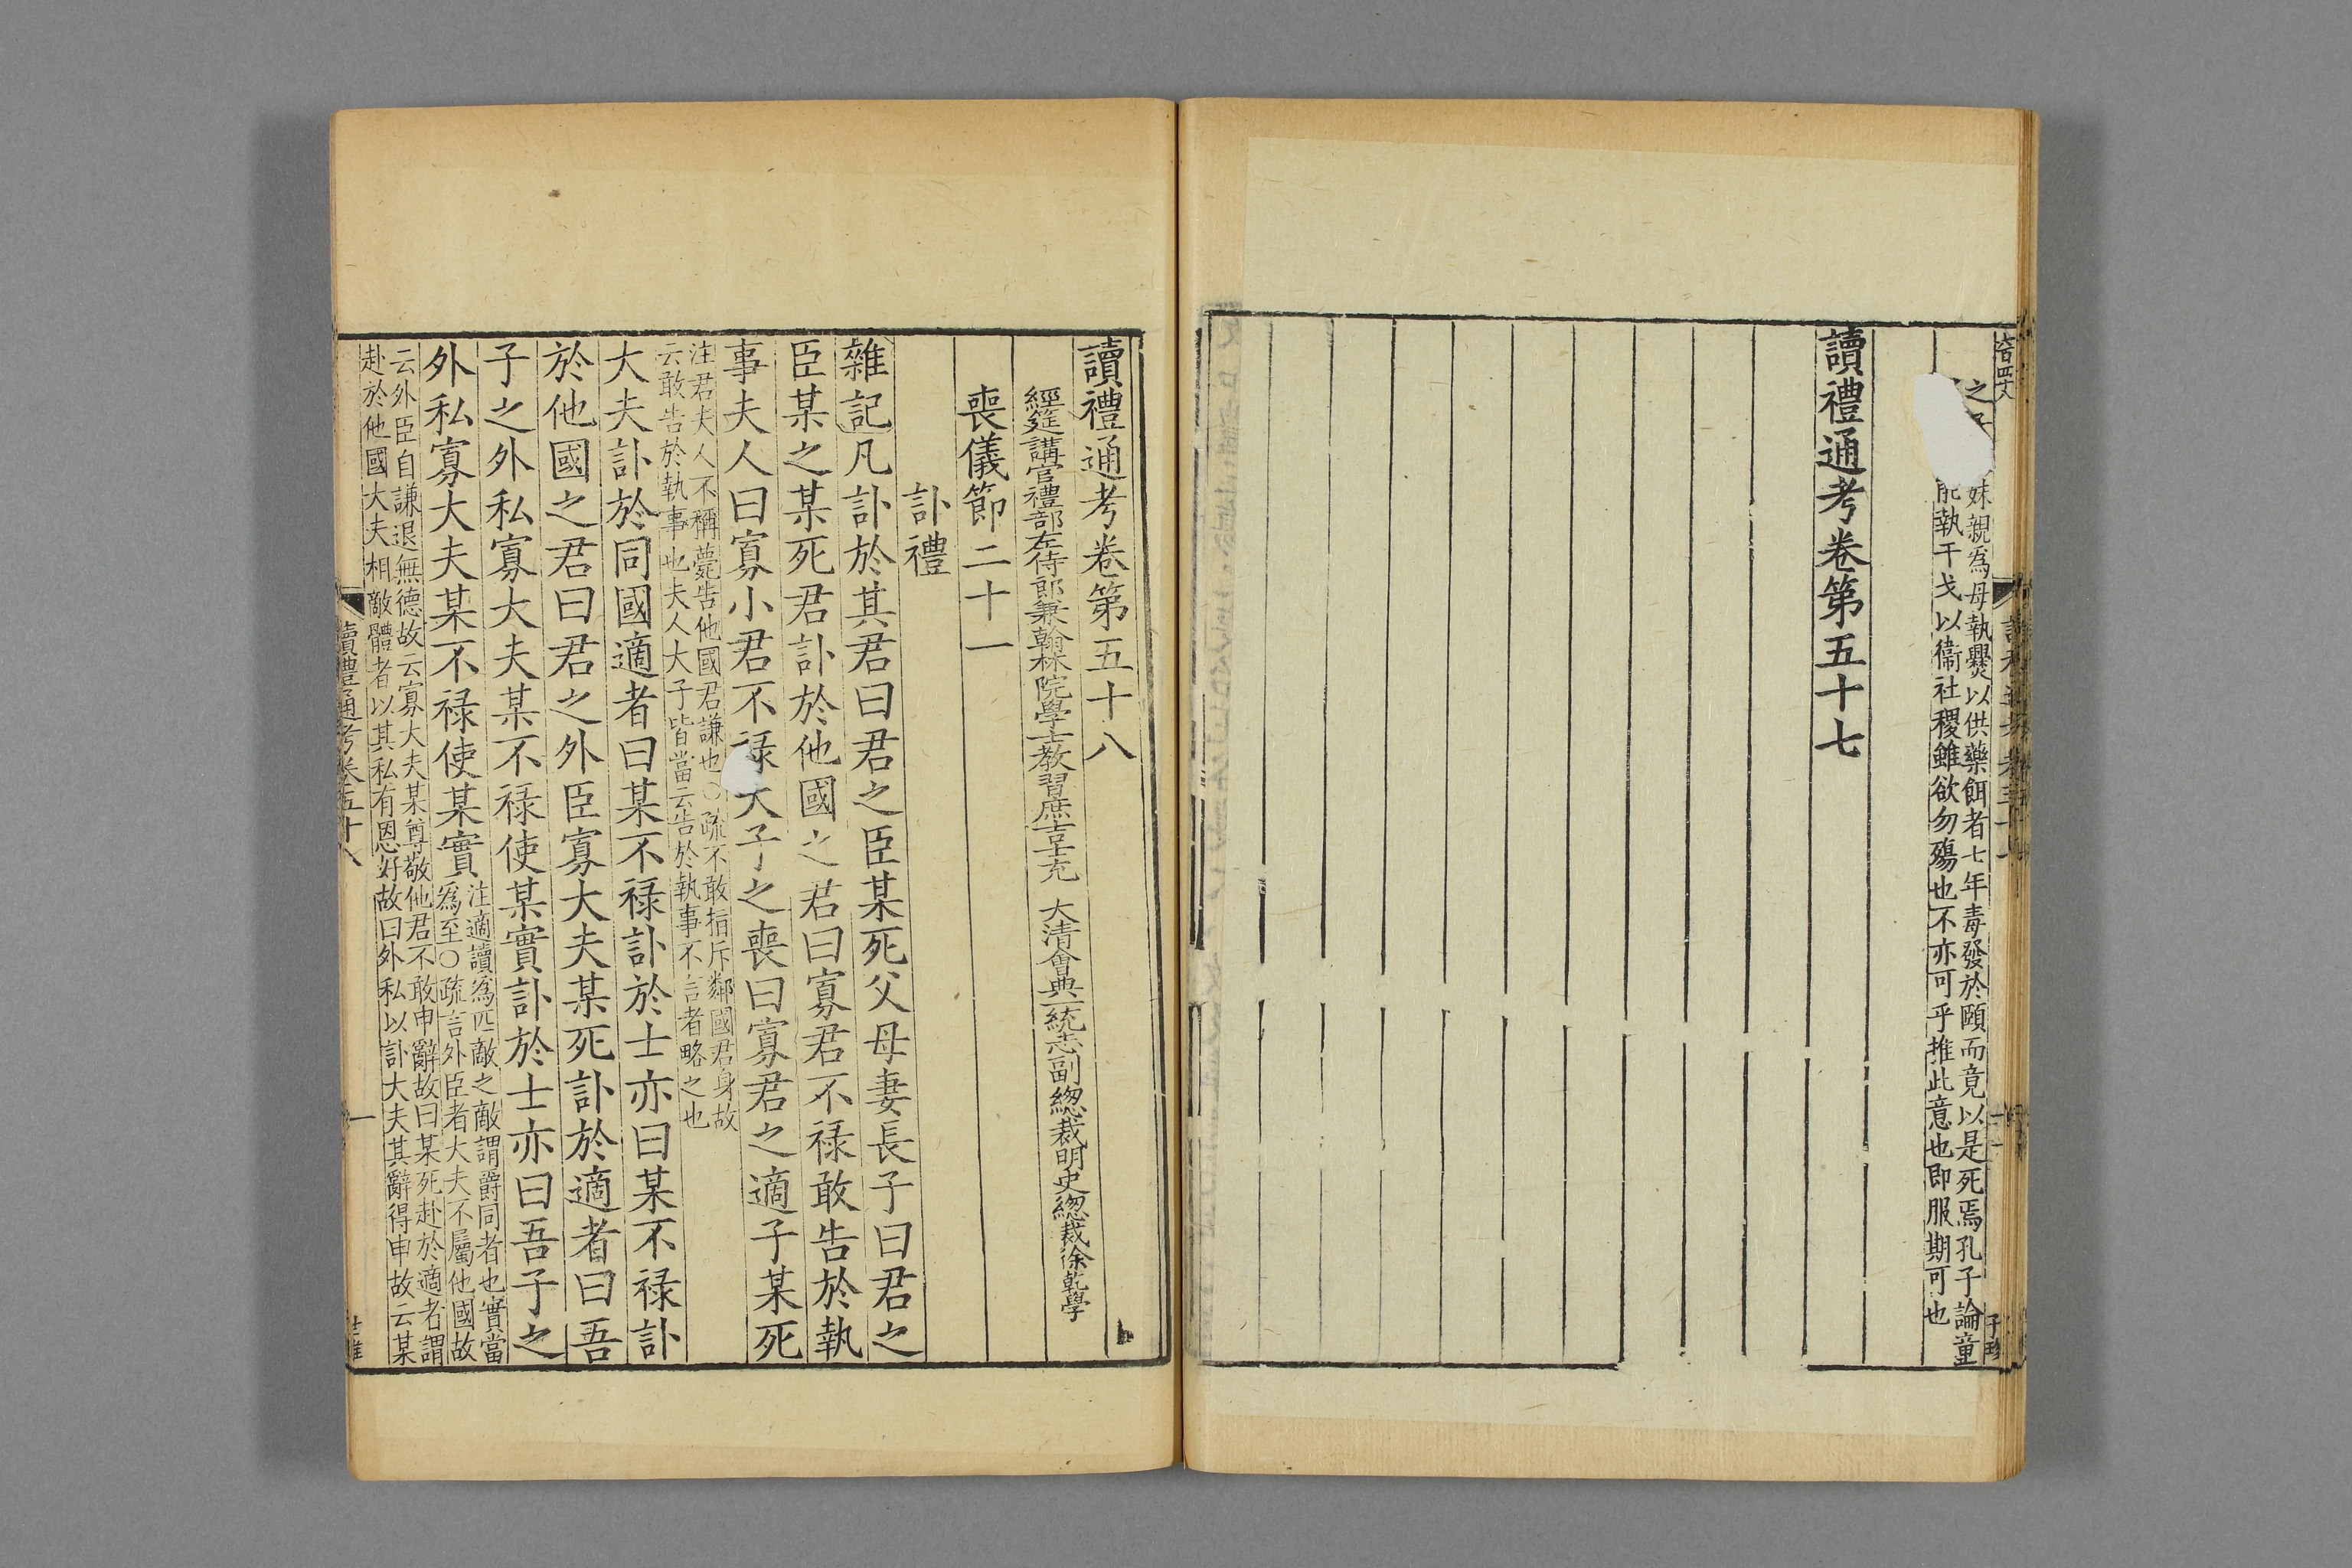 妹親為母執爨以供藥餌者七年毒發於頤而竟以是死焉孔子論童
能執干戈以衞社稷雖欲勿殤也不亦可乎推此意也即服期可也
讀禮通考卷第五十七
讀禮通考卷第五十八
經筵講官禮部左侍郎兼翰林院學士教習庶吉士充 大清會典一統志副總裁明史總裁徐乾學
喪儀節二十一
訃禮
雜記凡訃於其君曰君之臣某死父母妻長子曰君之
臣某之某死君訃於他國之君曰寡君不禄敢告於執
事夫人曰寡小君不禄大子之喪曰寡君之適子某死
注君夫人不稱薨告他國君謙也○疏不敢指斥鄰國君身故
云敢告於執事也夫人大子皆當云告於執事不言者略之也
大夫訃於同國適者曰某不禄訃於士亦曰某不禄訃
於他國之君曰君之外臣寡大夫某死訃於適者曰吾
子之外私寡大夫某不禄使某實訃於士亦曰吾子之
外私寡大夫某不禄使某實
注適讀為匹敵之敵謂爵同者也實當
為至○疏言外臣者大夫不屬他國故
云外臣自謙退無德故云寡大夫某尊敬他君不敢申辭故曰某死赴於適者謂
赴於他國大夫相敵體者以其私有恩好故曰外私以訃大夫其辭得申故云某
讀禮通考卷五十八
一